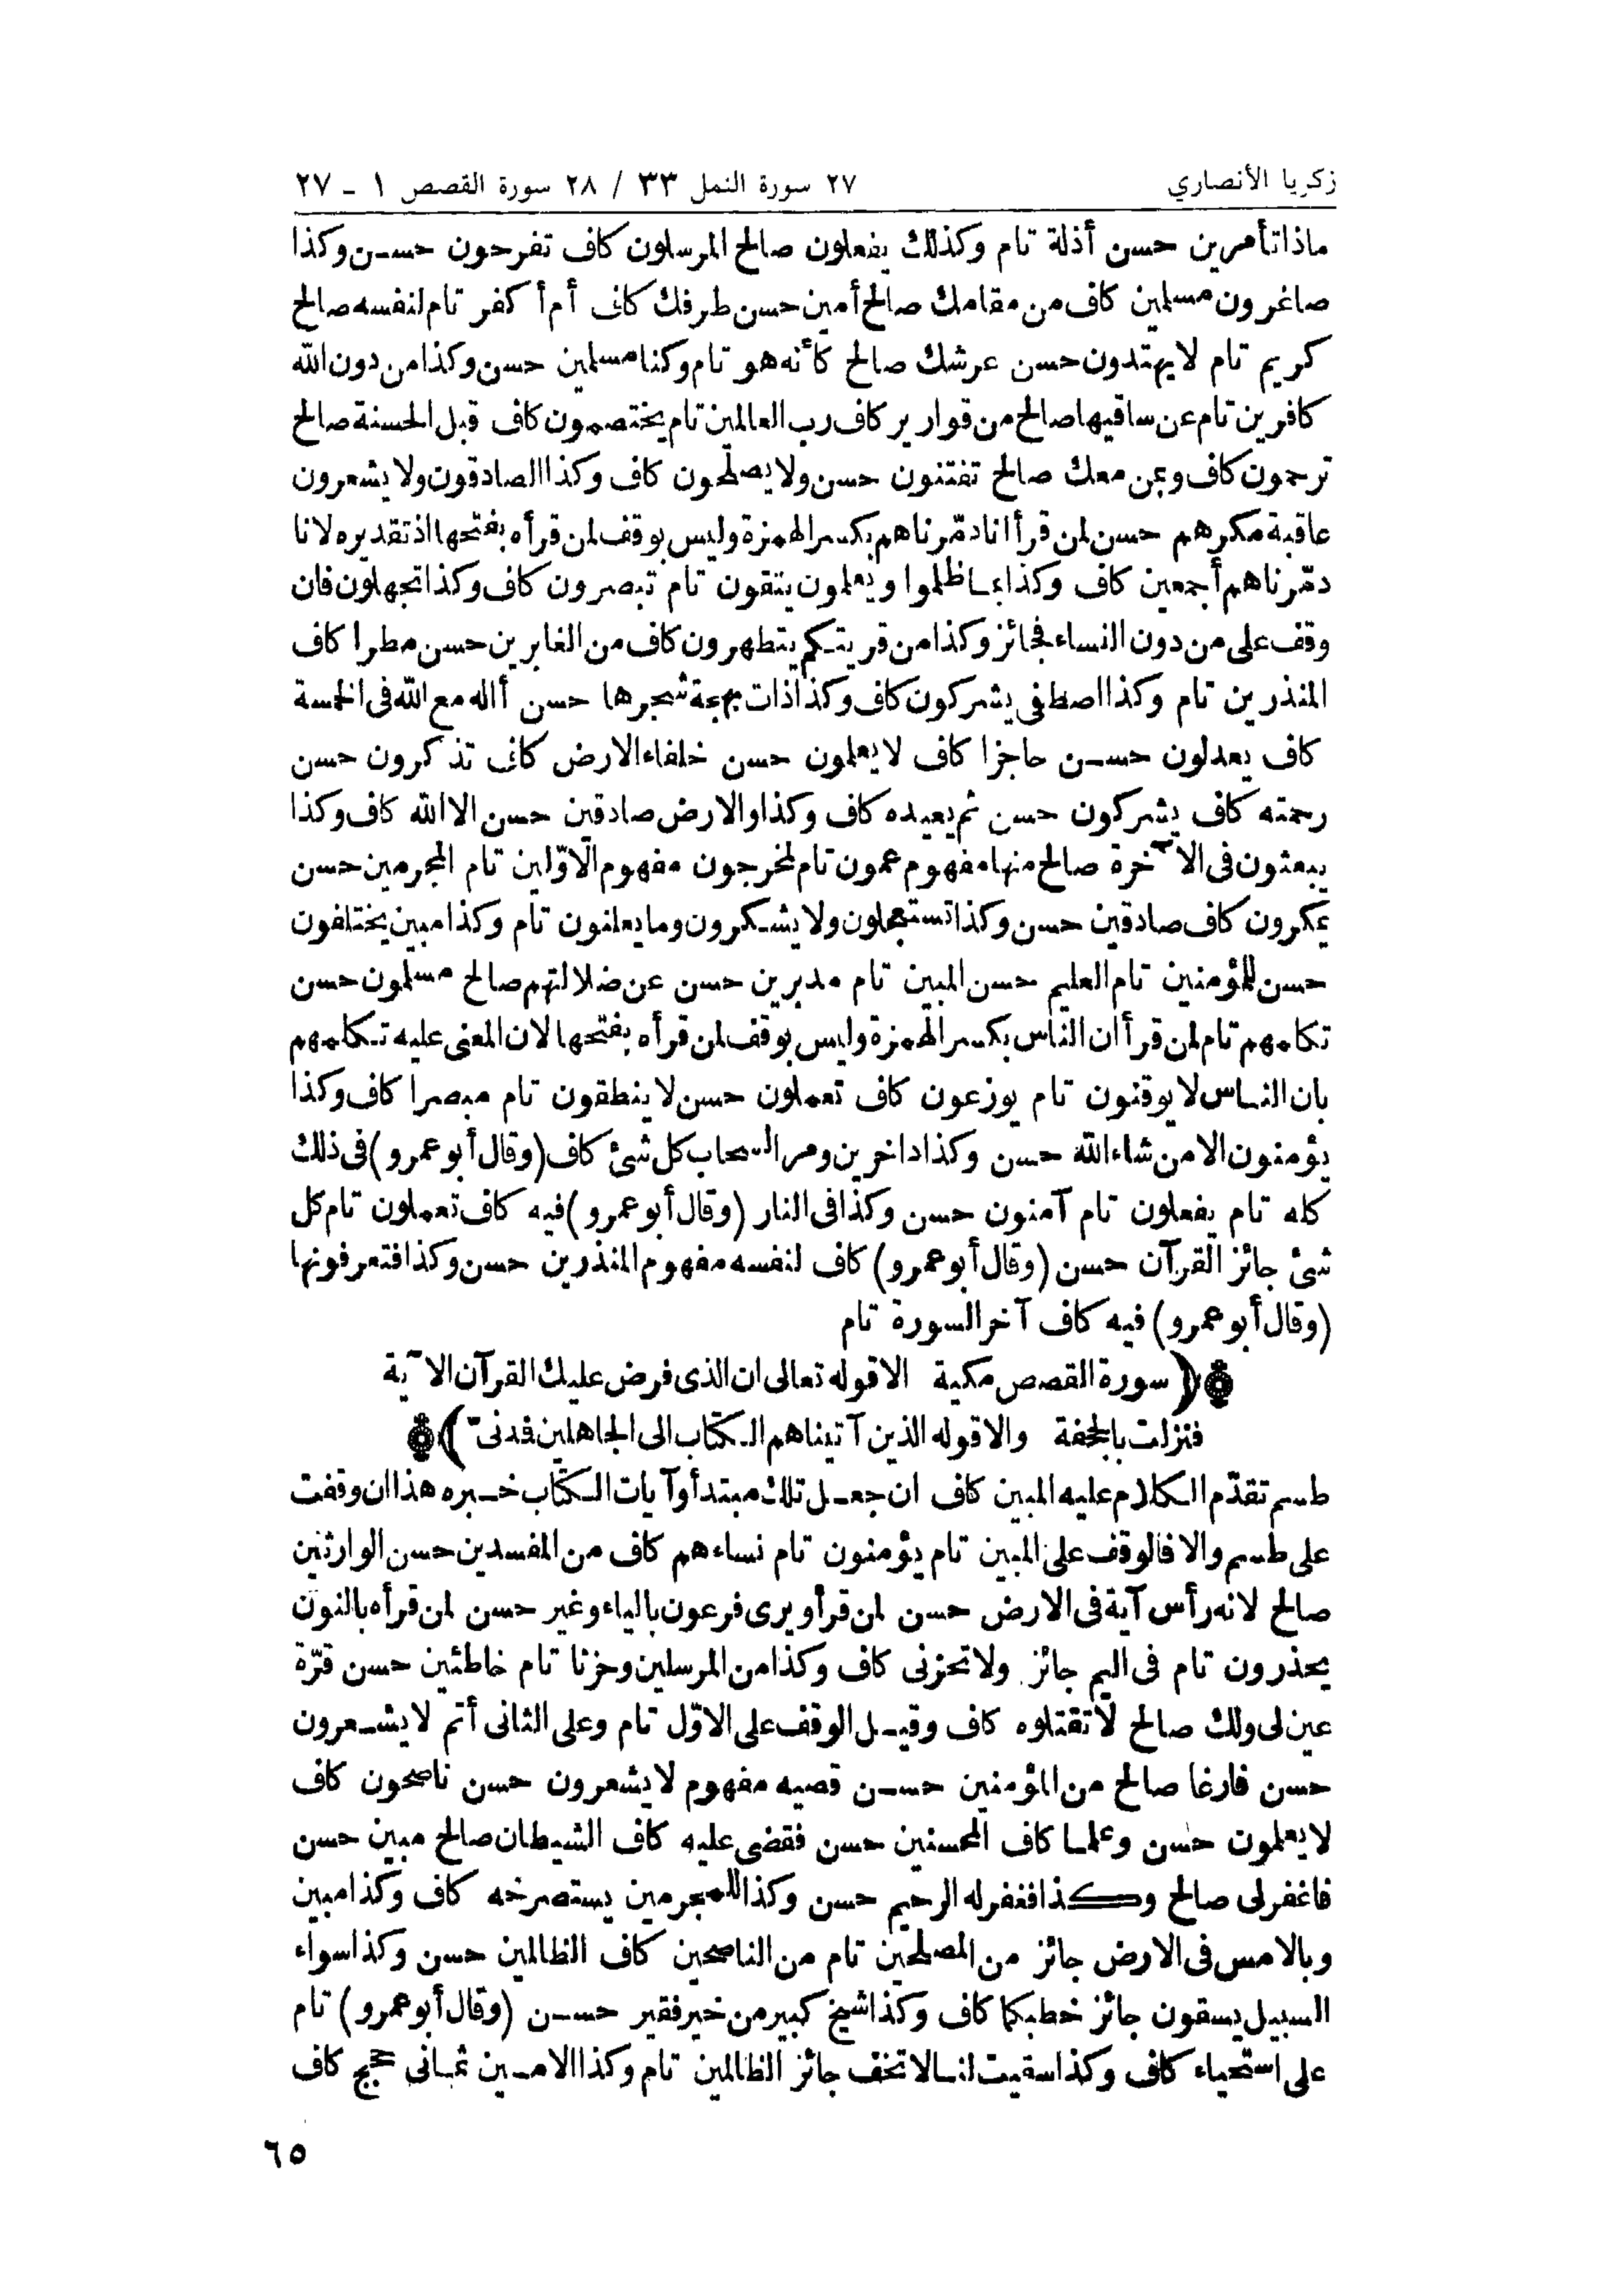 زكريا الأنصاري
٢٧ سورة النمل ٣٣ / ٢٨ سورة القصص ١ - ٢٧
ماذا تأمرين حسن أذلة تام وكذلك يفعلون صالح المرسلون كاف تفرحون حسن وكذا
صاغرون مسلمين كاف من مقامك صالح أمين حسن طرفك كافى أم أكفر تام لنفسه صالح
كريم تام لا يهتدون حسن عرشك صالح كأنه هو تام وكنا مسلمين حسن وكذا من دون الله
كافرين تام عن ساقيها صالح من قوارير كاف رب العالمين تام يختصمون كاف قبل الحسنة صالح
ترحمون كاف وبمن معك صالح تفتنون حسن ولا يصلحون كاف وكذا الصادقون ولا يشعرون
عاقبة مكرهم حسن لمن قرأ انا دمّرناهم بكسر الهمزة وليس بوقف لمن قرأه بفتحها اذ تقديره لانا
دمّرناهم أجمعين كاف وكذا بما ظلموا ويعلمون يتقون تام تبصرون كاف وكذا تجهلون فان
وقف على من دون النساء فجائز وكذا من قريتكم يتطهرون كاف من الغابرين حسن مطرا كاف
المنذرين تام وكذا اصطفى يشركون كاف وكذا ذات بهجة شجرها حسن أاله مع الله فى الخمسة
كاف يعدلون حسن حاجزا كاف لا يعلمون حسن خلفاء الارض كافى تذكرون حسن
رحمته كاف يشركون حسن ثم يعيده كاف وكذا والارض صادقين حسن الا الله كاف وكذا
يبعثون فى الآخرة صالح منها مفهوم عمون تام لمخرجون مفهوم الاوّلين تام المجرمين حسن
يمكرون كاف صادقين حسن وكذا تستعجلون ولا يشكرون وما يعلنون تام وكذا مبين يختلفون
حسن للمؤمنين تام العليم حسن المبين تام مدبرين حسن عن ضلالتهم صالح مسلمون حسن
تكلمهم تام لمن قرأ ان الناس بكسر الهمزة وليس بوقف لمن قرأه بفتحها لان المعنى عليه تكلمهم
بان الناس لا يوقنون تام يوزعون كاف تعملون حسن لا ينطقون تام مبصرا كاف وكذا
يؤمنون الا من شاء الله حسن وكذا داخرين ومر السحاب كل شئ كاف (وقال أبو عمرو) فى ذلك
كله تام يفعلون تام آمنون حسن وكذا فى النار (وقال أبو عمرو) فيه كاف تعملون تام كل
شئ جائز القرآن حسن (وقال أبو عمرو) كاف لنفسه مفهوم المنذرين حسن وكذا فتعرفونها
(وقال أبو عمرو) فيه كاف آخر السورة تام
(سورة القصص مكية الا قوله تعالى ان الذى فرض عليك القرآن الآية
فنزلت بالجحفة والا قوله الذين آتيناهم الكتاب الى الجاهلين فدنىّ)
طسم تقدّم الكلام عليه المبين كاف ان جعل تلك مبتدأ وآيات الكتاب خبره هذا ان وقفت
على طسم والا فالوقف على المبين تام يؤمنون تام نساءهم كاف من المفسدين حسن الوارثين
صالح لانه رأس آية فى الارض حسن لمن قرأ ويرى فرعون بالياء وغير حسن لمن قرأه بالنون
يحذرون تام فى اليم جائز ولا تحزنى كاف وكذا من المرسلين وحزنا تام خاطئين حسن قرّة
عين لى ولك صالح لا تقتلوه كاف وقيل الوقف على الاوّل تام وعلى الثانى أتم لا يشعرون
حسن فارغا صالح من المؤمنين حسن قصيه مفهوم لا يشعرون حسن ناصحون كاف
لا يعلمون حسن وعلما كاف المحسنين حسن فقضى عليه كاف الشيطان صالح مبين حسن
فاغفر لى صالح وكذا فغفر له الرحيم حسن وكذا للمجرمين يستصرخه كاف وكذا مبين
وبالامس فى الارض جائز من المصلحين تام من الناصحين كاف الظالمين حسن وكذا سواء
السبيل يسقون جائز خطبكما كاف وكذا شيخ كبير من خير فقير حسن (وقال أبو عمرو) تام
على استحياء كاف وكذا سقيت لنا لا تخف جائز الظالمين تام وكذا الامين ثمانى حجج كاف
٦٥